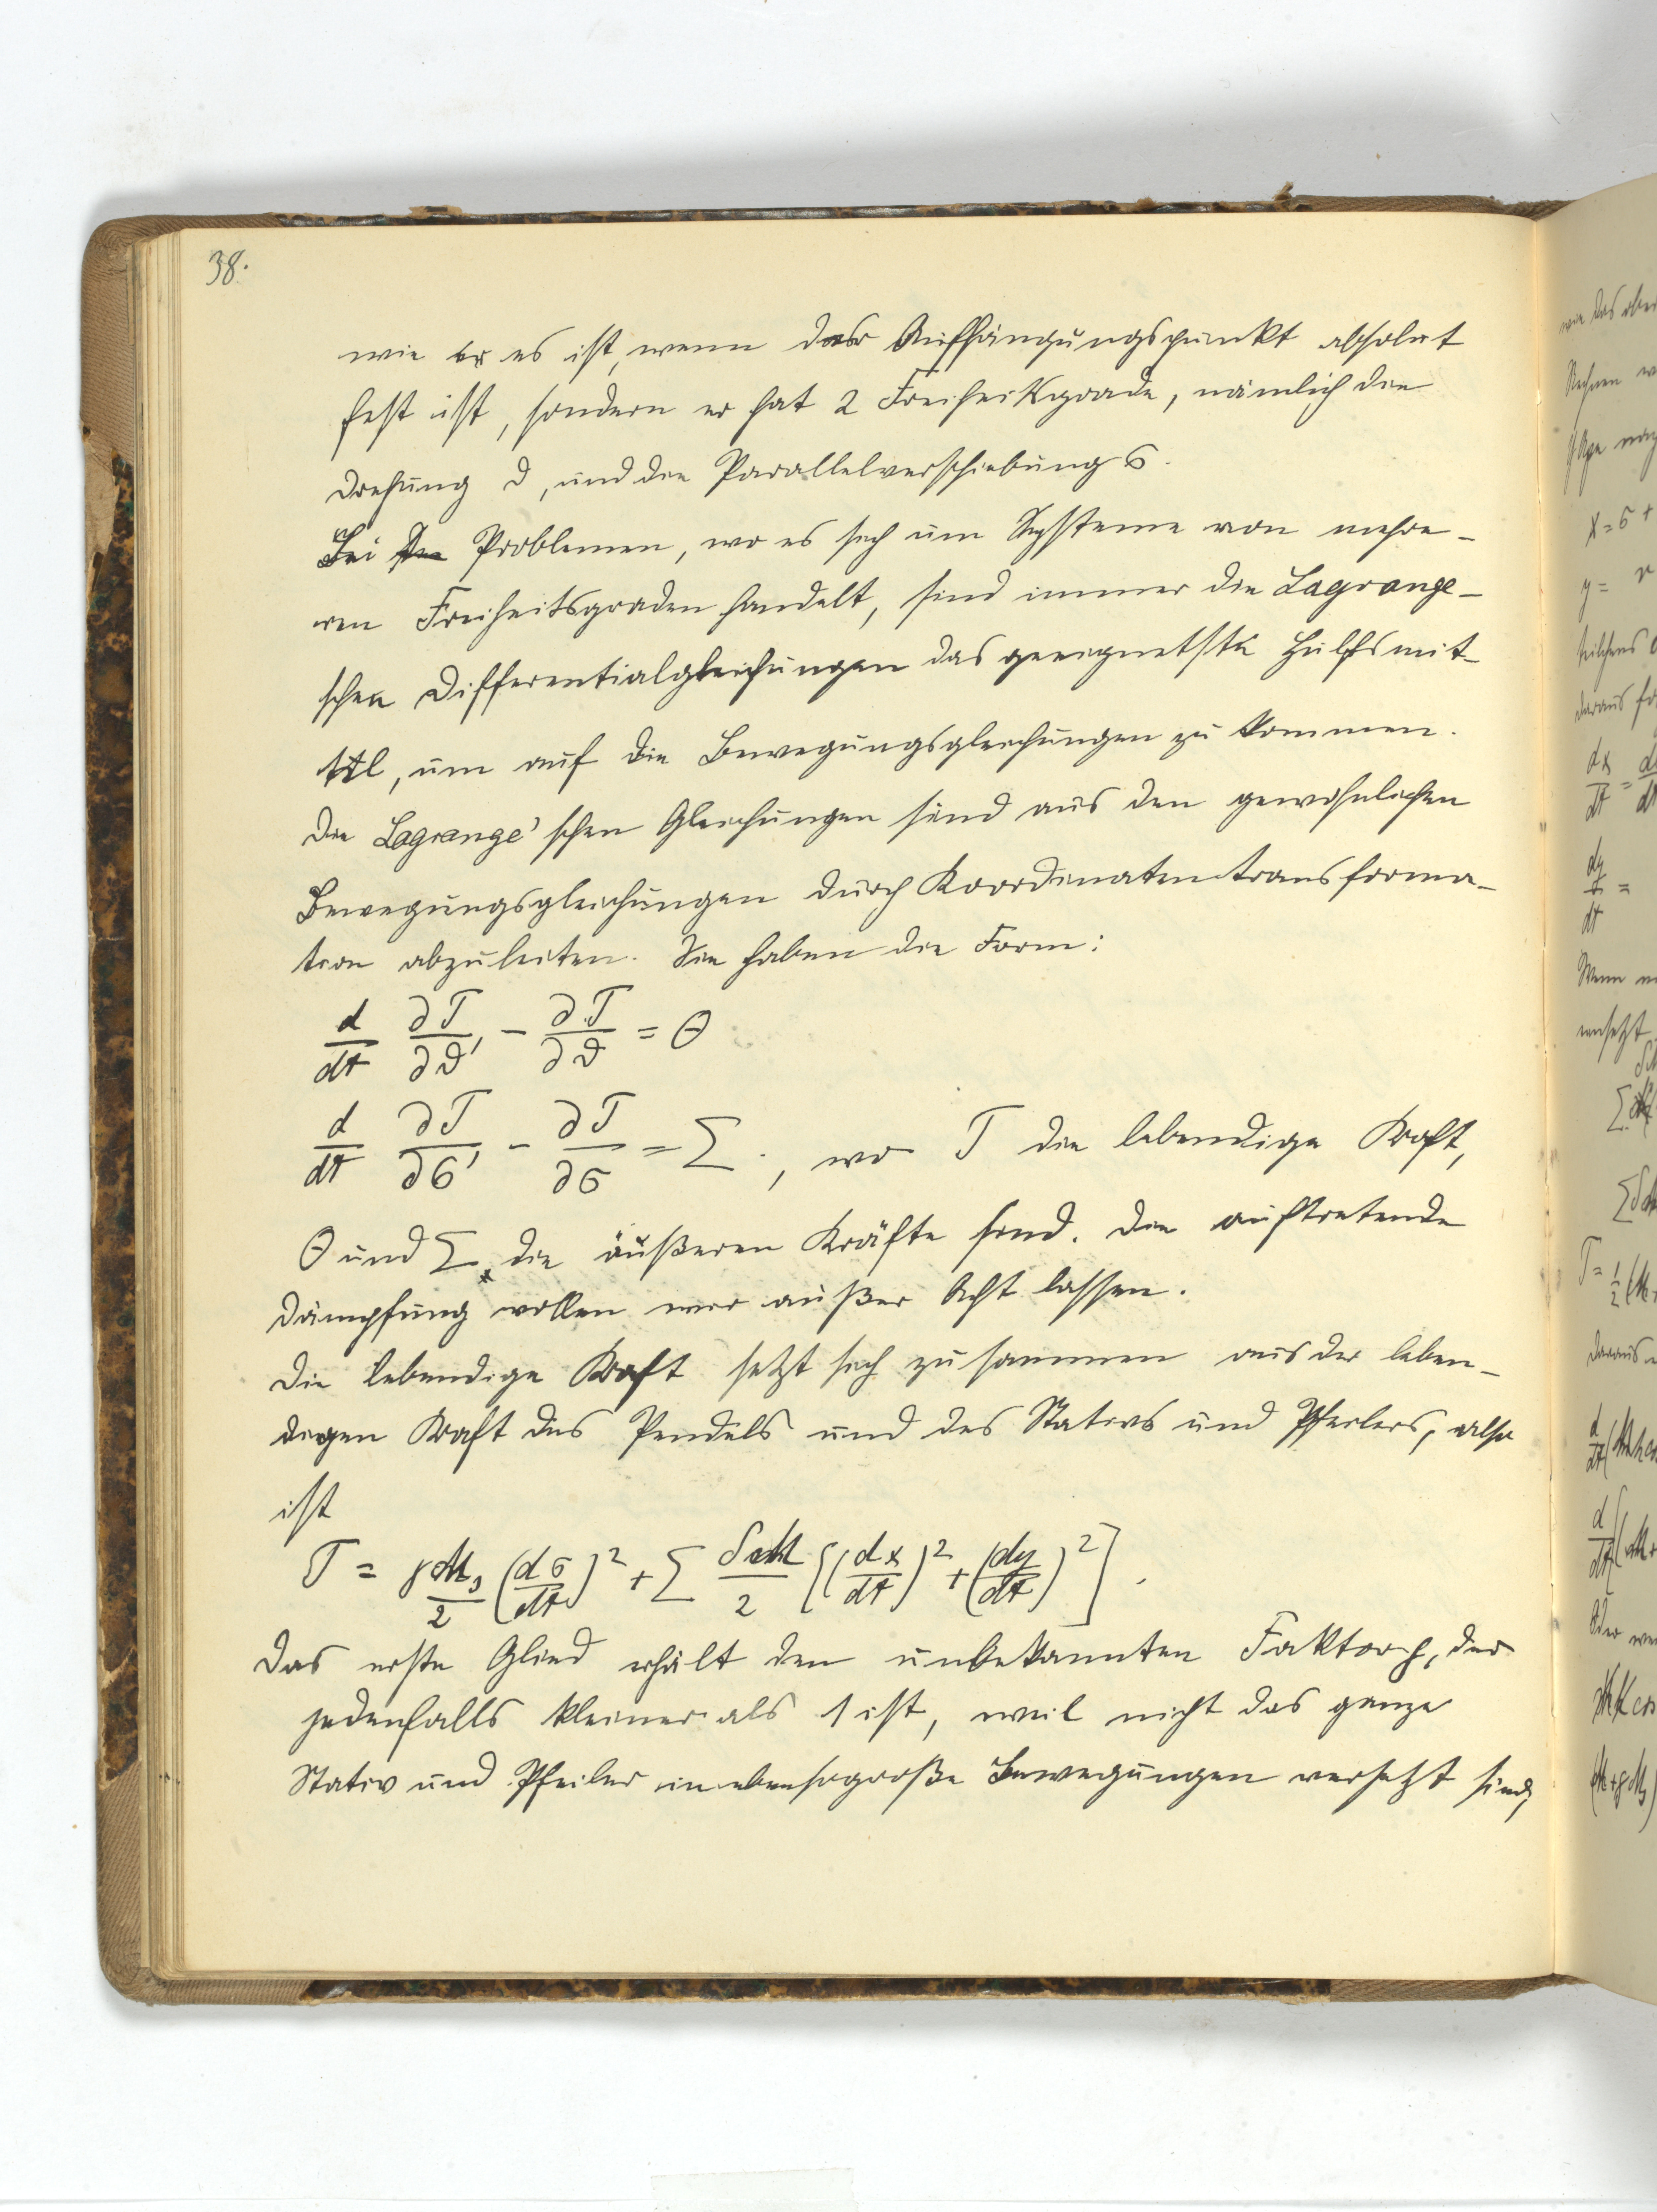 38.
wie er es ist, wenn der Aufhängungspunkt absolut
fest ist, sondern er hat 2 Freiheitsgrade, nämlich die
Drehung ϑ, und die Parallelverschiebung σ.
Bei Problemen, wo es sich um Systeme von mehre-
ren Freiheitsgraden handelt, sind immer die Lagrange-
schen Differentialgleichungen das geeignetste Hülfsmit-
tel, um auf die Bewegungsgleichungen zu kommen.
Die Lagrange'schen Gleichungen sind aus den gewöhnlichen
Bewegungsgleichungen durch Koordinatentransforma-
tion abzuleiten. Sie haben die Form:
d/dt ∂T/∂ϑ' - ∂T/∂ϑ = Θ
d/dt ∂T/∂σ' - ∂T/∂σ = Σ., wo T die lebendige Kraft,
Θ und Σ die äußeren Kräfte sind. Die auftretende
Dämpfung wollen wir außer Acht lassen.
Die lebendige Kraft setzt sich zusammen aus der leben-
digen Kraft des Pendels und des Stativs und Pfeilers, also
ist
T = γM₃/2 (dσ/dt)² + Σ δM/2 [(dx/dt)² + (dy/dt)²].
Das erste Glied erhält den unbekannten Faktor γ, der
jedenfalls kleiner als 1 ist, weil nicht das ganze
Stativ und Pfeiler in ebensogroße Bewegungen versetzt sind,
wie das
Rechnen
x = σ +
y =
daraus
dx/dt =
dy/dt =
Wenn
T = 1/2 (M
daraus
d/dt
d/dt
Oder
(M + γM₃)